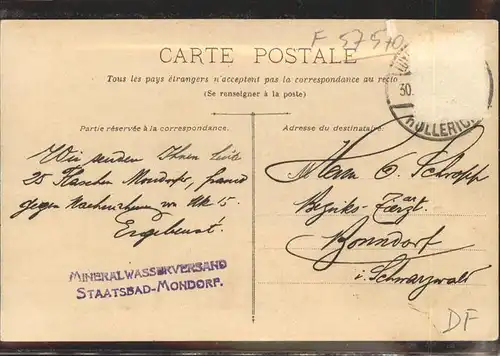 F 57570
CARTE POSTALE
Tous les pays étrangers n'acceptent pas la correspondance au recto
(Se renseigner à la poste)
30.
HOLLERICH
Partie réservée à la correspondance.
Wir senden Ihnen heute
25 Flaschen Mondorfer, franco
gegen Nachnahme von Mk 15.
Ergebenst.
MINERALWASSERVERSAND
STAATSBAD-MONDORF.
Adresse du destinataire.
Herrn O. Schropp
Bezirks-Tierarzt.
Bonndorf
i. Schwarzwald
DF